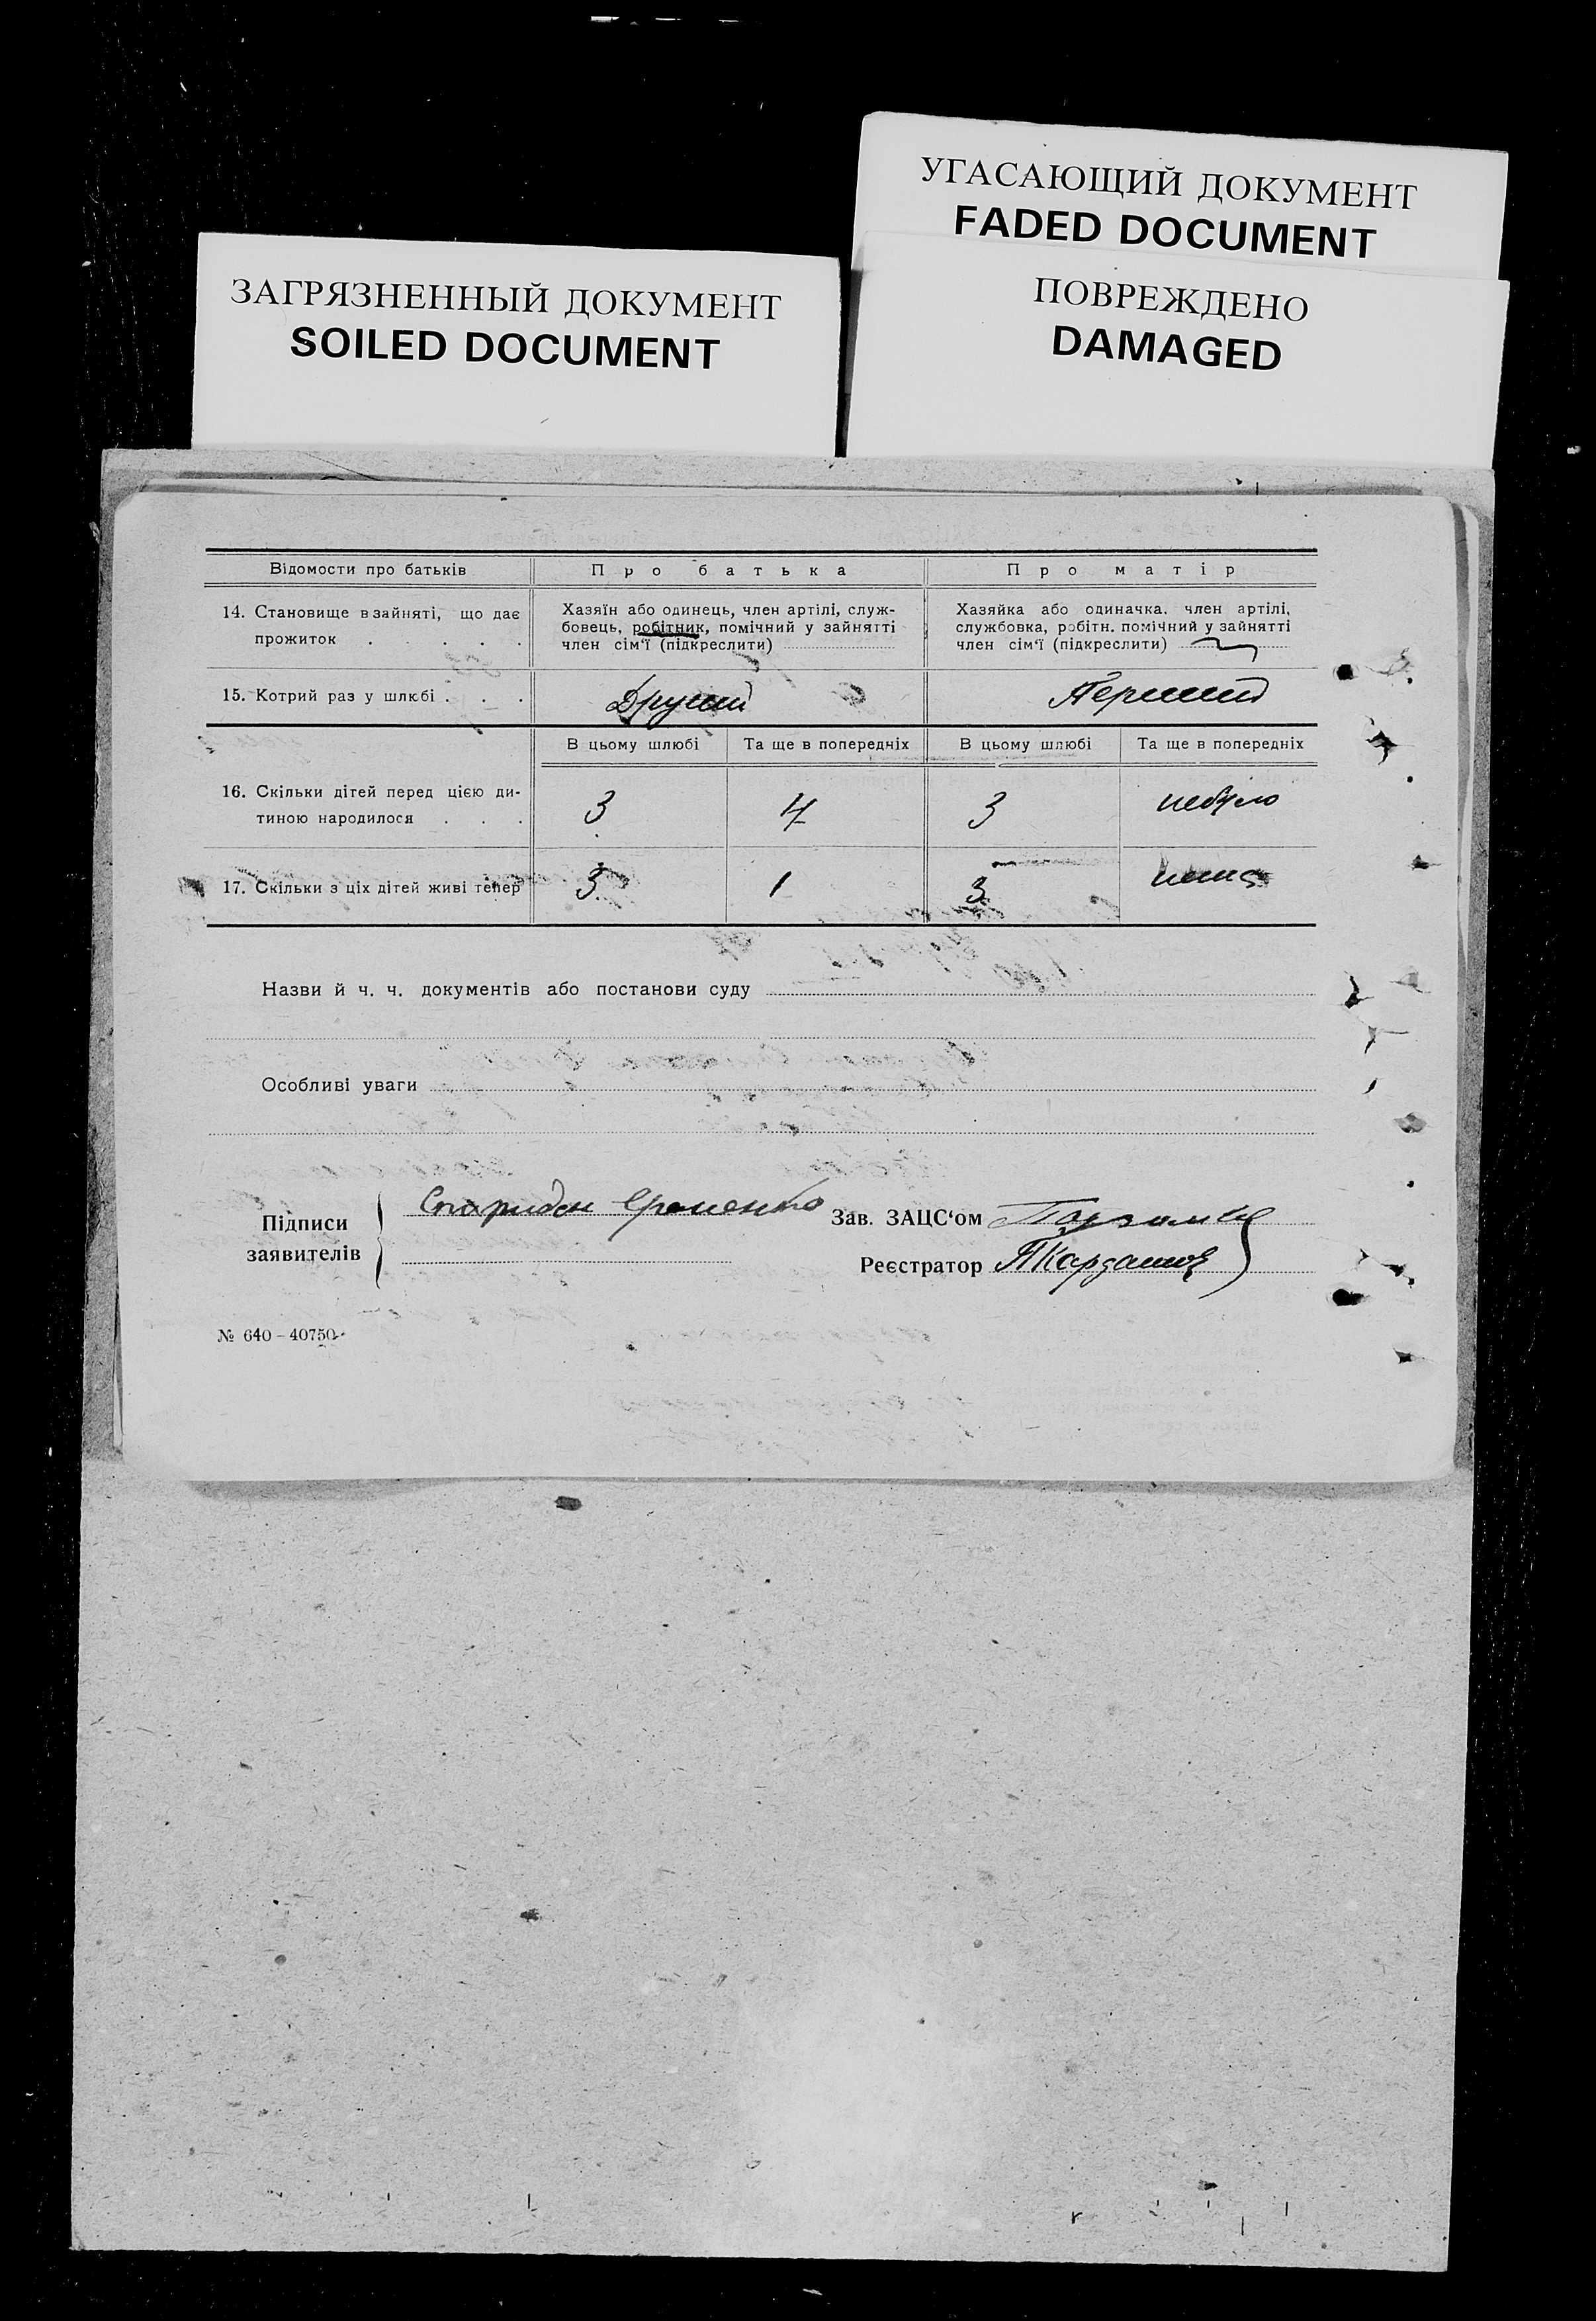 УГАСАЮЩИЙ ДОКУМЕНТ
FADED DOCUMENT
ЗАГРЯЗНЕННЫЙ ДОКУМЕНТ
SOILED DOCUMENT
ПОВРЕЖДЕНО
DAMAGED
Відомости про батьків Про батька Про матір
14. Становище в зайняті, що дає прожиток . . . . .
Хазяїн або одинець, член артілі, служ-
бовець, робітник, помічний у зайнятті
член сім'ї (підкреслити)
Хазяйка або одиначка, член артілі,
службовка, робітн. помічний у зайнятті
член сім'ї (підкреслити)
15. Котрий раз у шлюбі . . . Другий Перший
В цьому шлюбі Та ще в попередніх В цьому шлюбі Та ще в попередніх
16. Скільки дітей перед цією ди-
тиною народилося . . . 3 4 3 небуло
17. Скільки з ціх дітей живі тепер 3. 1 3. нема
Назви й ч. ч. документів або постанови суду
Особливі уваги
Підписи
заявителів
Спиридон Єременко
Зав. ЗАЦС'ом
Реєстратор
№ 640 - 40750